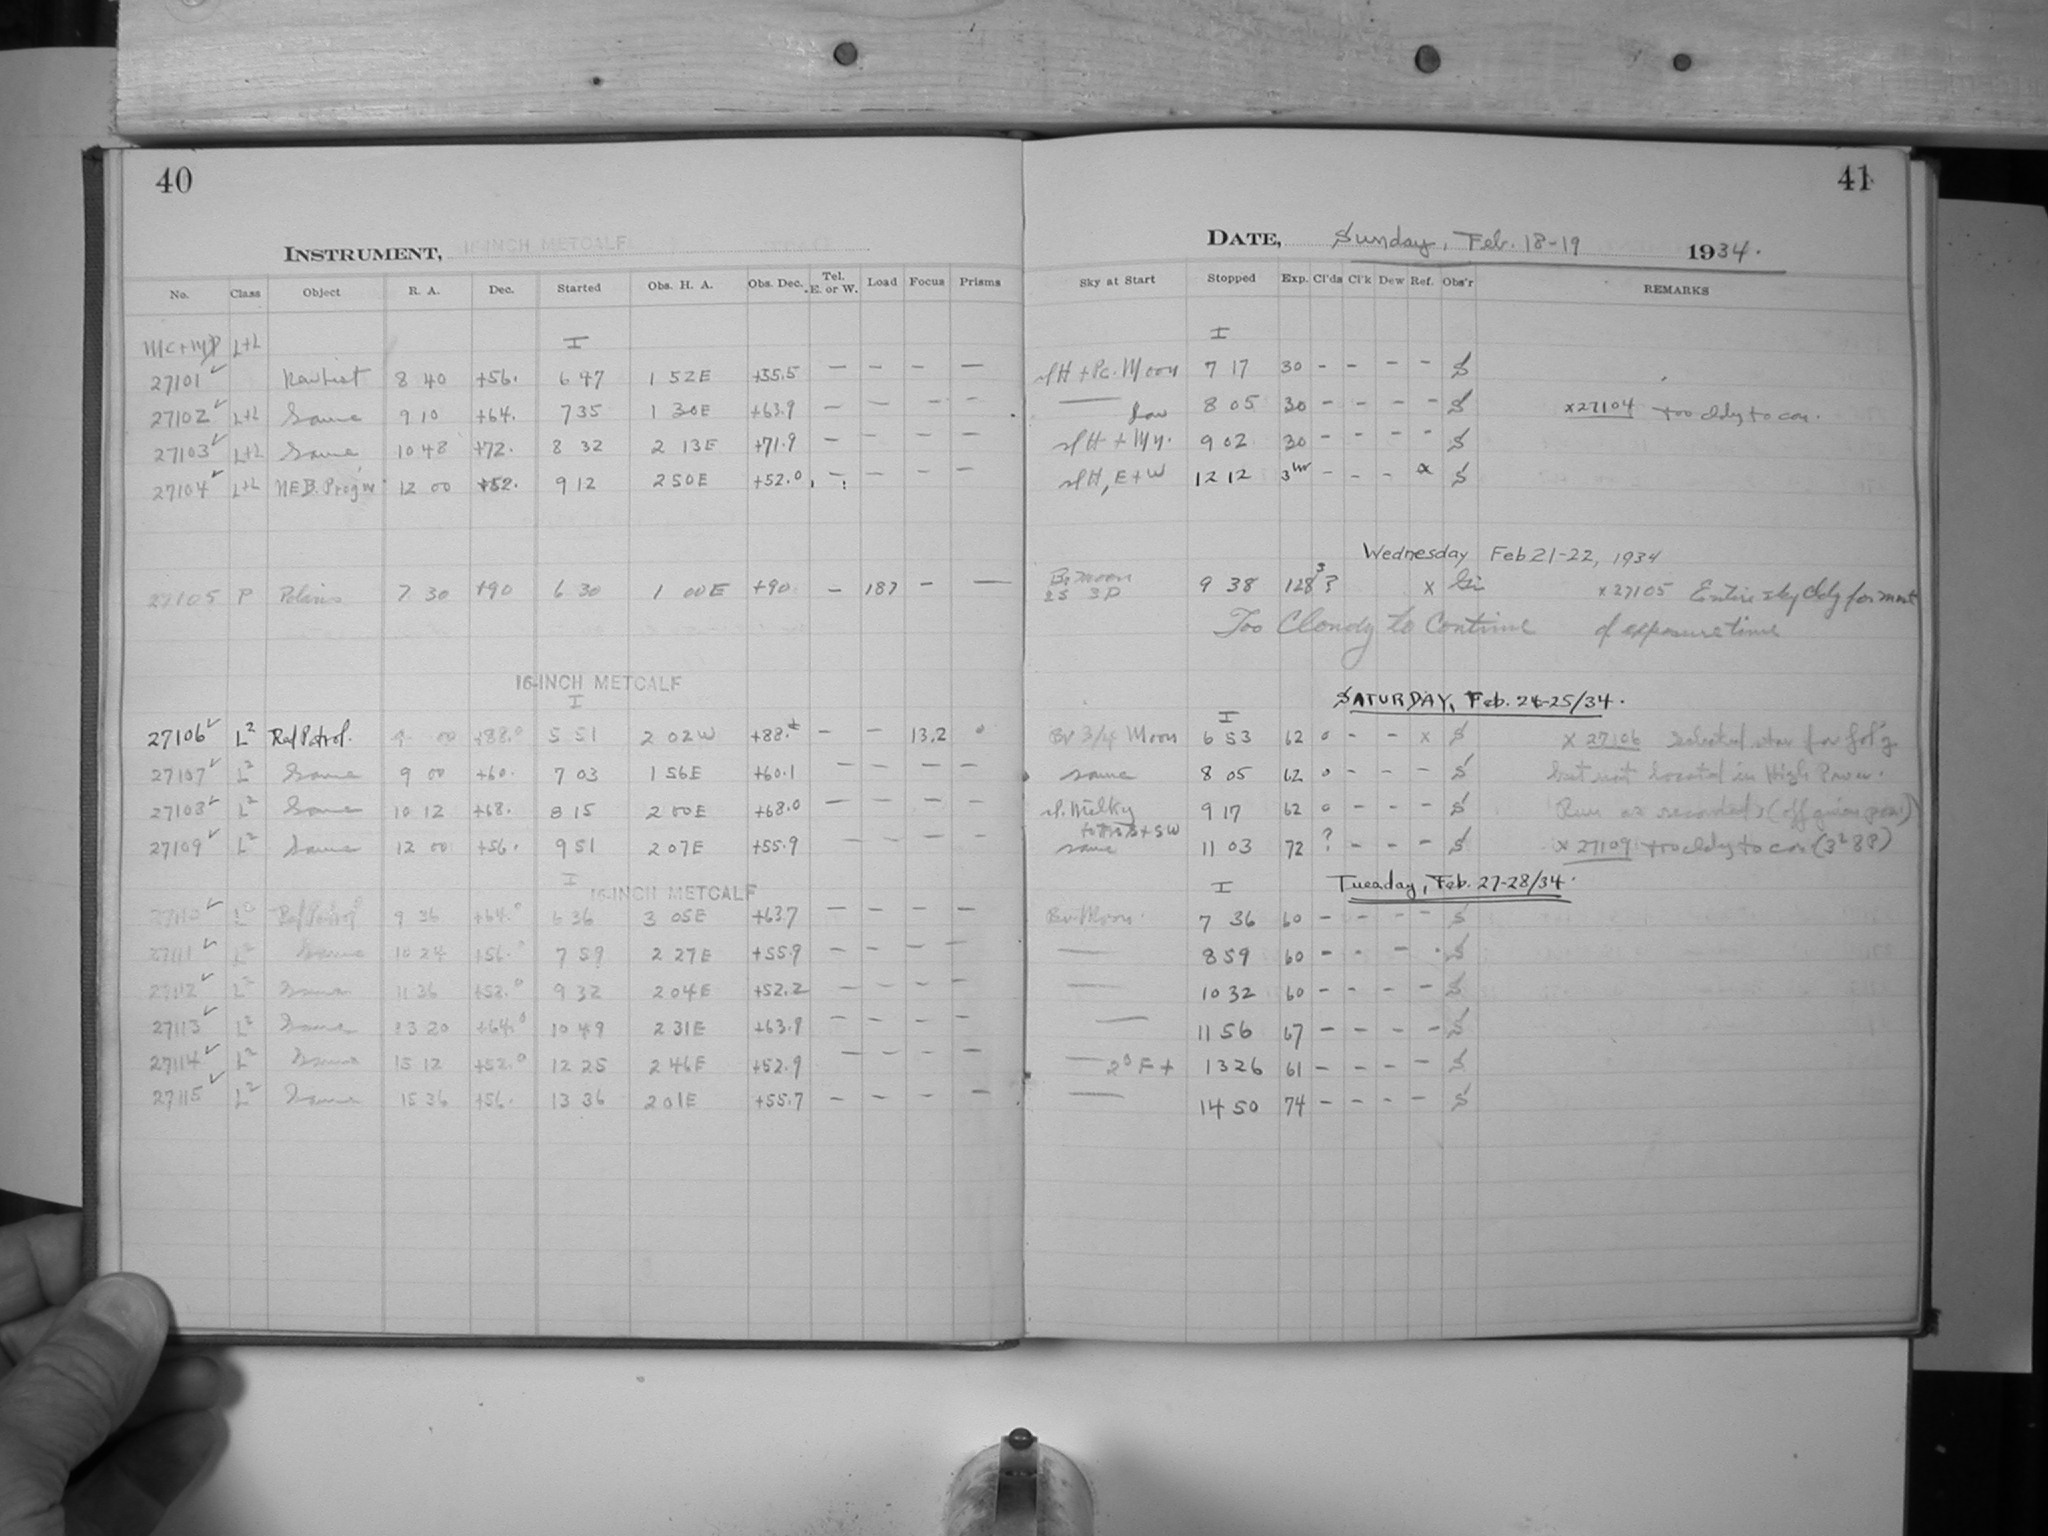 40
INSTRUMENT, 16-INCH METCALF
No. Class Object R. A. Dec. Started Obs. H. A. Obs. Dec. Tel. E. or W. Load Focus Prisms
MC+MP L+L I
27101 8 40 +56. 6 47 1 52E +55.5 — — — —
27102 L+L Same 9 10 +64. 7 35 1 30E +63.9 — — — —
27103 L+L Same 10 48 +72. 8 32 2 13E +71.9 — — — —
27104 L+L NEB. 12 00 +52. 9 12 2 50E +52.0 — — — —
27105 P Polaris 7 30 +90 6 30 1 00E +90 — 187 — —
16-INCH METCALF
I
27106 L² Ref Patrol. 00 +88.° 5 51 2 02W +88.± — — 13.2 0
27107 L² Same 9 00 +60. 7 03 1 56E +60.1 — — — —
27108 L² Same 10 12 +68. 8 15 2 00E +68.0 — — — —
27109 L² Same 12 00 +56. 9 51 2 07E +55.9 — — — —
I 16-INCH METCALF
27110 L² Ref Patrol 9 36 +64.° 6 36 3 05E +63.7 — — — —
27111 L² Same 10 24 +56.° 7 59 2 27E +55.9 — — — —
27112 L² Same 11 36 +52.° 9 32 2 04E +52.2 — — — —
27113 L² Same 13 20 +64.° 10 49 2 31E +63.9 — — — —
27114 L² Same 15 12 +52.° 12 25 2 46E +52.9 — — — —
27115 L² Same 15 36 +56. 13 36 2 01E +55.7 — — — —
41
DATE, Sunday, Feb. 18-19 1934.
Sky at Start Stopped Exp. Cl'ds Cl'k Dew Ref. Obs'r REMARKS
I
sl H + Pc. Moon 7 17 30 - - - - S
— low 8 05 30 - - - - S x27104 too cldy to con.
sl H + 9 02 30 - - - - S
sl H, E+W 12 12 3hr - - - x S
Wednesday Feb 21-22, 1934
Br moon
2S 3P 9 38 128 ? x x 27105 Entire sky cldy for most
Too Cloudy to Continue of exposure time
SATURDAY, Feb. 24-25/34.
I
Br 3/4 Moon 6 53 62 0 - - x S x 27106 selected star for
same 8 05 62 0 - - - S but not located in High Power.
sl. Milky 9 17 62 0 - - - S Run as recorded
same 11 03 72 ? - - - S x 27109 too cldy to con
I Tuesday, Feb. 27-28/34.
Br. Moon. 7 36 60 - - - - S
— 8 59 60 - - - - S
— 10 32 60 - - - - S
— 11 56 67 - - - - S
— 13 26 61 - - - - S
— 14 50 74 - - - - S